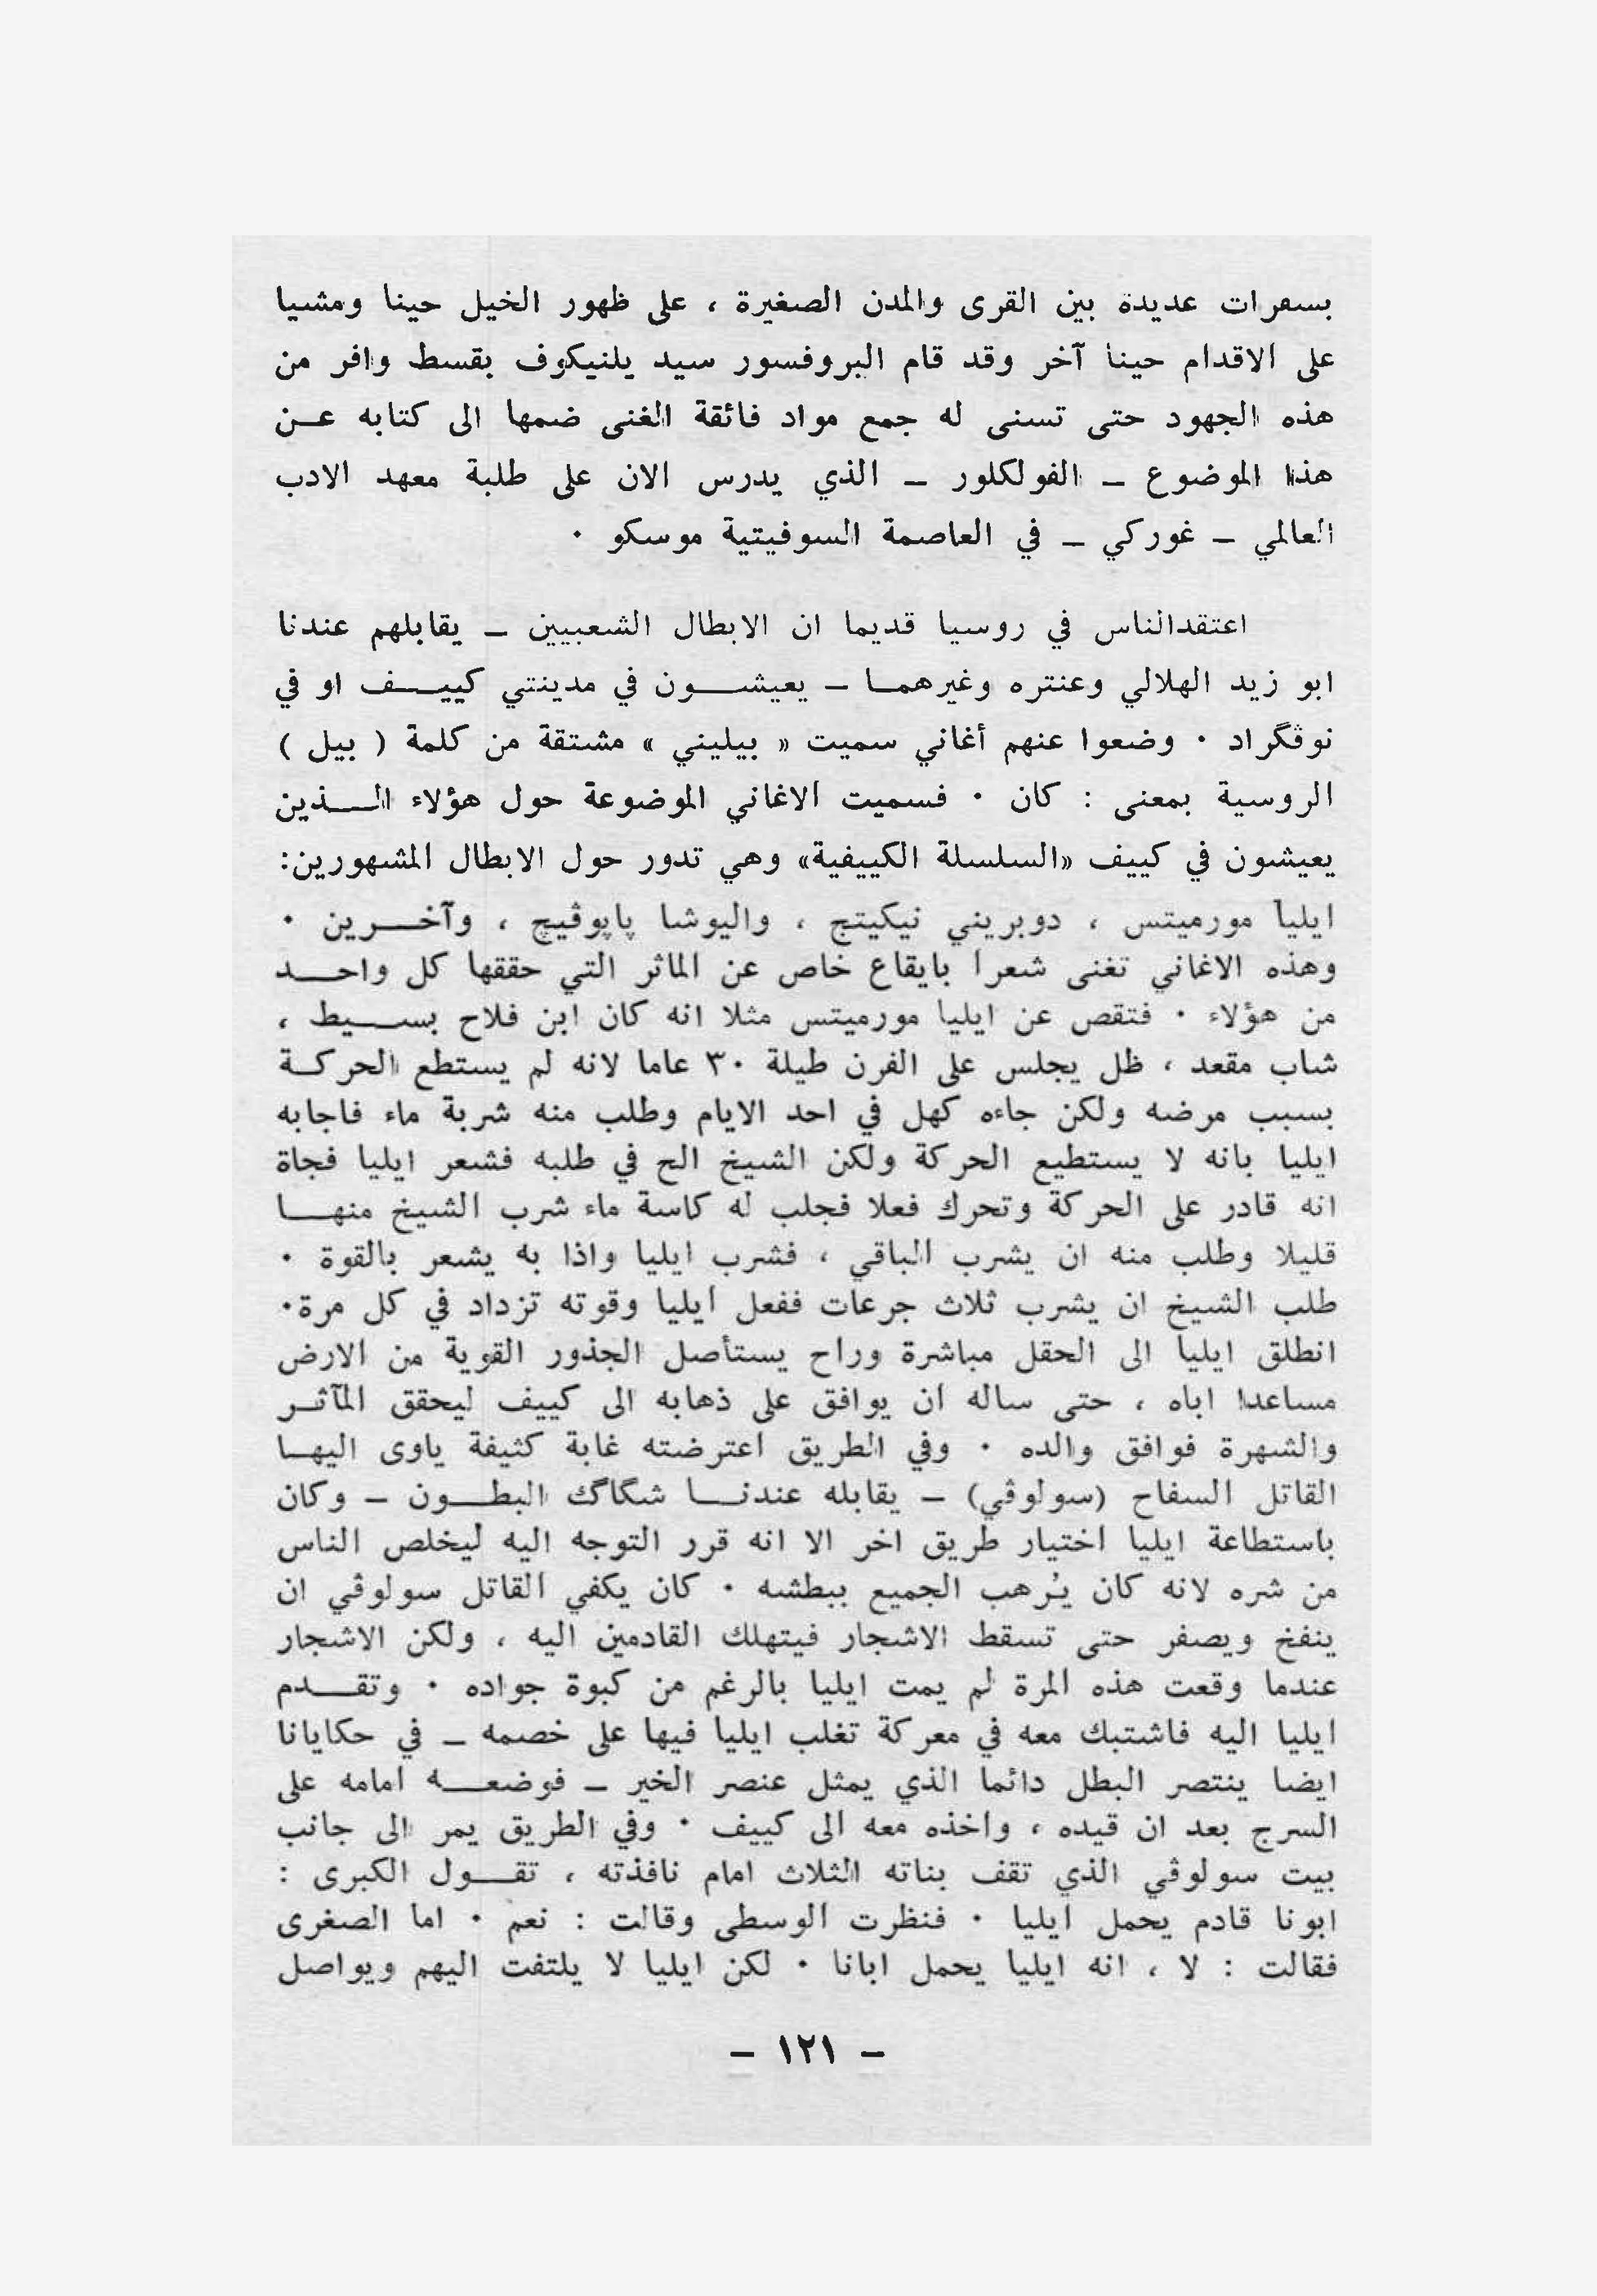 بسفرات عديدة بين القرى والمدن الصغيرة ، على ظهور الخيل حينا ومشيا
على الاقدام حينا آخر وقد قام البروفسور سيد يلنيكوف بقسط وافر من
هذه الجهود حتى تسنى له جمع مواد فائقة الغنى ضمها الى كتابه عن
هذا الموضوع – الفولكلور – الذي يدرس الان على طلبة معهد الادب
العالمي – غوركي – في العاصمة السوفيتية موسكو ٠
اعتقدالناس في روسيا قديما ان الابطال الشعبيين – يقابلهم عندنا
ابو زيد الهلالي وعنتره وغيرهما – يعيشون في مدينتي كييف او في
نوڤگراد ٠ وضعوا عنهم أغاني سميت « بيليني » مشتقة من كلمة ( بيل )
الروسية بمعنى : كان ٠ فسميت الاغاني الموضوعة حول هؤلاء الذين
يعيشون في كييف «السلسلة الكييفية» وهي تدور حول الابطال المشهورين:
ايليا مورميتس ، دوبريني نيكيتج ، واليوشا پاپوڤيچ ، وآخرين ٠
وهذه الاغاني تغنى شعرا بايقاع خاص عن الماثر التي حققها كل واحد
من هؤلاء ٠ فتقص عن ايليا مورميتس مثلا انه كان ابن فلاح بسيط ،
شاب مقعد ، ظل يجلس على الفرن طيلة ٣٠ عاما لانه لم يستطع الحركة
بسبب مرضه ولكن جاءه كهل في احد الايام وطلب منه شربة ماء فاجابه
ايليا بانه لا يستطيع الحركة ولكن الشيخ الح في طلبه فشعر ايليا فجاة
انه قادر على الحركة وتحرك فعلا فجلب له كاسة ماء شرب الشيخ منها
قليلا وطلب منه ان يشرب الباقي ، فشرب ايليا واذا به يشعر بالقوة ٠
طلب الشيخ ان يشرب ثلاث جرعات ففعل ايليا وقوته تزداد في كل مرة٠
انطلق ايليا الى الحقل مباشرة وراح يستأصل الجذور القوية من الارض
مساعدا اباه ، حتى ساله ان يوافق على ذهابه الى كييف ليحقق المآثر
والشهرة فوافق والده ٠ وفي الطريق اعترضته غابة كثيفة ياوى اليها
القاتل السفاح (سولوڤي) – يقابله عندنا شگاگ البطون – وكان
باستطاعة ايليا اختيار طريق اخر الا انه قرر التوجه اليه ليخلص الناس
من شره لانه كان يُرهب الجميع ببطشه ٠ كان يكفي القاتل سولوڤي ان
ينفخ ويصفر حتى تسقط الاشجار فيتهلك القادمين اليه ، ولكن الاشجار
عندما وقعت هذه المرة لم يمت ايليا بالرغم من كبوة جواده ٠ وتقدم
ايليا اليه فاشتبك معه في معركة تغلب ايليا فيها على خصمه – في حكايانا
ايضا ينتصر البطل دائما الذي يمثل عنصر الخير – فوضعه امامه على
السرج بعد ان قيده ، واخذه معه الى كييف ٠ وفي الطريق يمر الى جانب
بيت سولوڤي الذي تقف بناته الثلاث امام نافذته ، تقول الكبرى :
ابونا قادم يحمل ايليا ٠ فنظرت الوسطى وقالت : نعم ٠ اما الصغرى
فقالت : لا ، انه ايليا يحمل ابانا ٠ لكن ايليا لا يلتفت اليهم ويواصل
– ١٢١ –